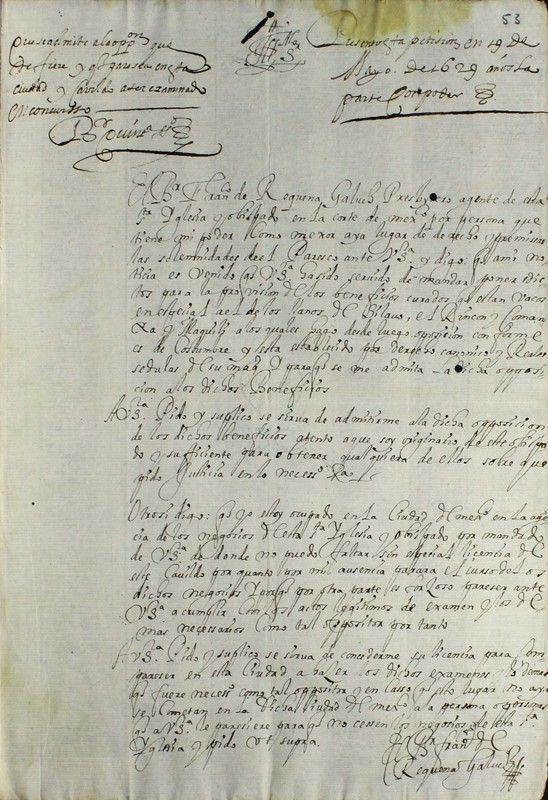 53
Que se admite el oppon que
Presentose esta peticion en 19 de
Mayo de 1629 años La
parte con poder
ciudad y cavildo a ser examinado
en concurso
El Br Franco de Requena Galvez Presbytero agente de esta
sta Yglesia y obispado en la corte de mexco por persona que
tiene mi poder como mexor aya lugar de derecho y premissas
las solemnidades de el Paresco ante V sa y digo q a mi no
ticia es venido q V sa a sido servido de mandar poner edic
tos para la provision de los beneficios curados q estan vacos
en especial a el de los llanos, el Rincon y Comari
tla y Maquili a los quales hago desde luego oposicion conforme
es de Costumbre y esta establecido por derecho canonico y Reales
sedulas de su mag. Y para q se me admita la dicha opposi
cion a los dichos Beneficios
A V sa Pido y suplico se sirva de admitirme a la dicha opposicion
de los dichos beneficios atento a que soy originario de este obispa
do y sufficiente para obtener qualquiera de ellos sobre que
pido Justicia en lo necesso
Otrosi digo: q yo estoy ocupado en la Ciudad de mexco en la agen
cia de los negocios de esta sta Yglesia y obispado por mandado
de V sa de donde no puedo faltar sin especial licencia de
este Cavildo por quanto por mi ausencia parara el curso de los
dichos negocios Y porq por otra parte es forzoso pareser ante
V sa a cumplir con los actos legitimos de examen y los de
mas necessarios como tal oppositor por tanto
A V sa Pido y suplico se sirva de concederme su licencia para com
pareser en esta Ciudad a hazer los dichos examenes y lo demas
q fuere necesso como tal oppositor y en casso q esto lugar no aya
se cometan en la dicha ciudad de mexco a la persona o personas
q a V sa le paresiere para q no cessen los negocios de esta sta
Yglesia y pido ut supra.
El Br Franco de
Requena Galvez